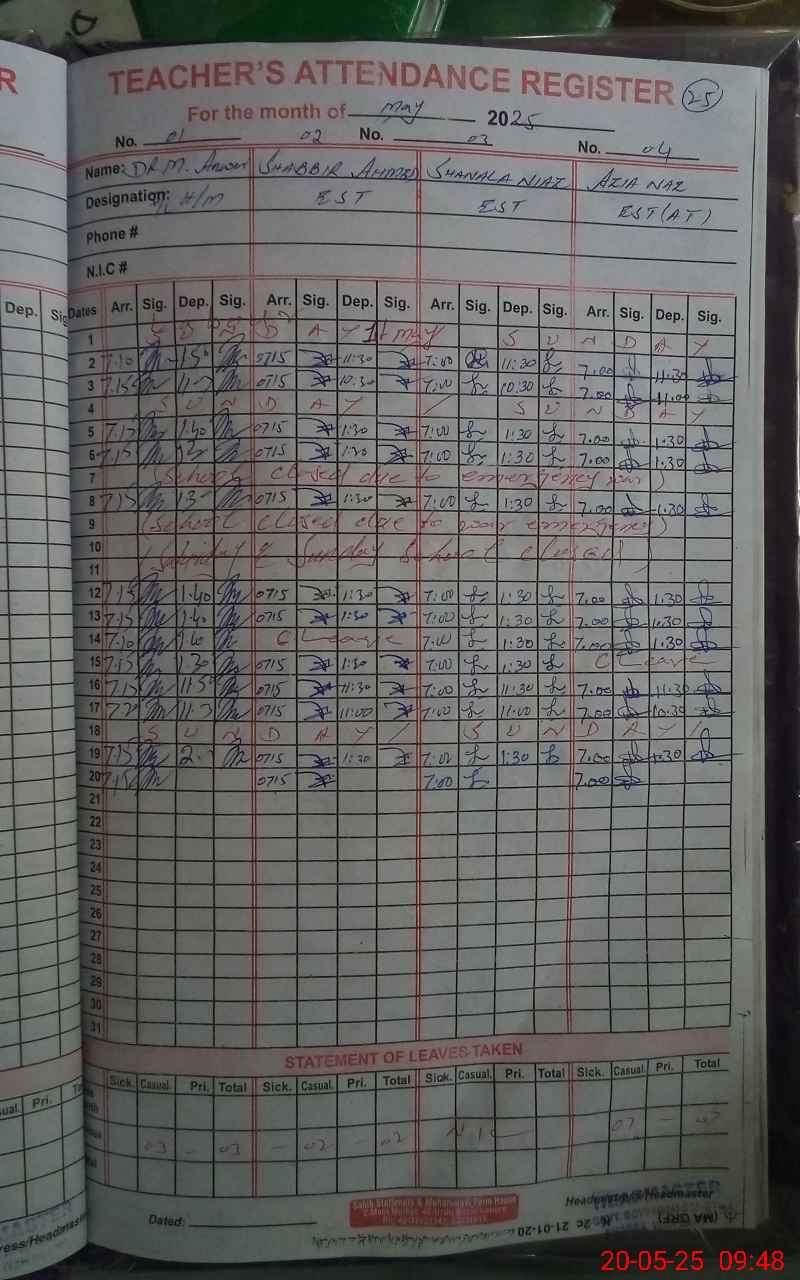 R
TEACHER'S ATTENDANCE REGISTER 25
For the month of May 2025
No. 01 02 No. 03 No. 04
Name: DR M. SHABBIR AHMED SHANALA NIAZ AZIA NAZ
Designation: H/M EST EST EST (AT)
Phone #
N.I.C #
Dep. Sig Dates Arr. Sig. Dep. Sig. Arr. Sig. Dep. Sig. Arr. Sig. Dep. Sig. Arr. Sig. Dep. Sig.
1 S U N D A Y 1st May S U N D A Y
2 7.10 0715 11:30 7:00 11:30 7.00 11.30
3 7.15 0715 10:30 7:00 10:30 7.00 11.00
4 S U N D A Y / S U N D A Y
5 7.15 1.40 0715 1:30 7:00 1:30 7.00 1.30
6 7.15 0715 1:30 7:00 1:30 7.00 1.30
7 (School closed due to emergency war)
8 7.15 0715 1:30 7:00 1:30 7.00 1.30
9 (School closed due to war emergency)
10 (Saturday & Sunday School closed)
11
12 7.15 1.40 0715 1:30 7:00 1:30 7.00 1.30
13 7.15 1.40 0715 1:30 7:00 1:30 7.00 1.30
14 7.10 1.40 C Leave 7:00 1:30 7.00 1.30
15 7.15 1.30 0715 1:30 7:00 1:30 C Leave
16 7.15 0715 11:30 7:00 11:30 7.00 11.30
17 0715 11:00 7:00 11:00 7.00 10.30
18 S U N D A Y / S U N D A Y /
19 7.15 0715 1:30 7:00 1:30 7.00 1.30
20 7.15 0715 7:00 7.00
21
22
23
24
25
26
27
28
29
30
31
STATEMENT OF LEAVES TAKEN
ual. Pri. Sick. Casual. Pri. Total Sick. Casual. Pri. Total Sick. Casual. Pri. Total Sick. Casual. Pri. Total
03 - 03 - 02 - 02 Nil 07 - 07
Dated:
Headmistress/Headmaster
ress/Headmaster
21-01-20
20-05-25 09:48